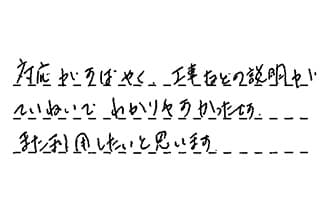 対応がすばやく、工事などの説明が
ていねいで わかりやすかったです。
また利用したいと思います。